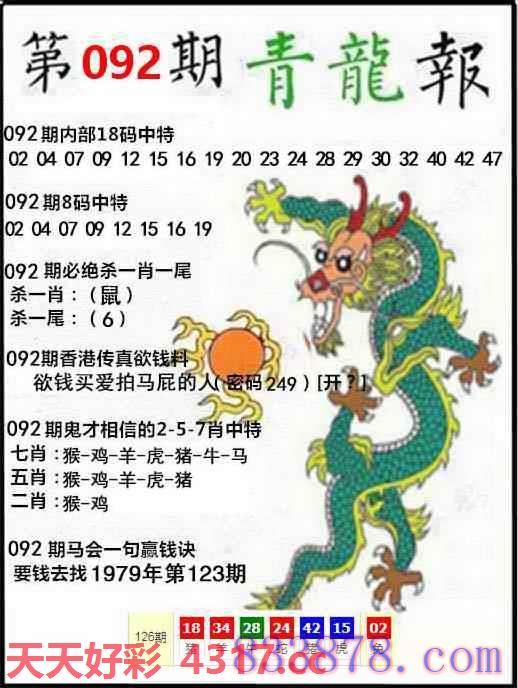 第092期青龍報
092期内部18码中特
02 04 07 09 12 15 16 19 20 23 24 28 29 30 32 40 42 47
092期8码中特
02 04 07 09 12 15 16 19
092 期必绝杀一肖一尾
杀一肖：（鼠）
杀一尾：（6）
092期香港传真欲钱料
欲钱买爱拍马屁的人(密码249)[开?]
092期鬼才相信的2-5-7肖中特
七肖：猴-鸡-羊-虎-猪-牛-马
五肖：猴-鸡-羊-虎-猪
二肖：猴-鸡
092 期马会一句赢钱诀
要钱去找1979年第123期
126期 18 34 28 24 42 15 02
猪 羊 牛 蛇 猪 虎 兔
天天好彩 4317.cc